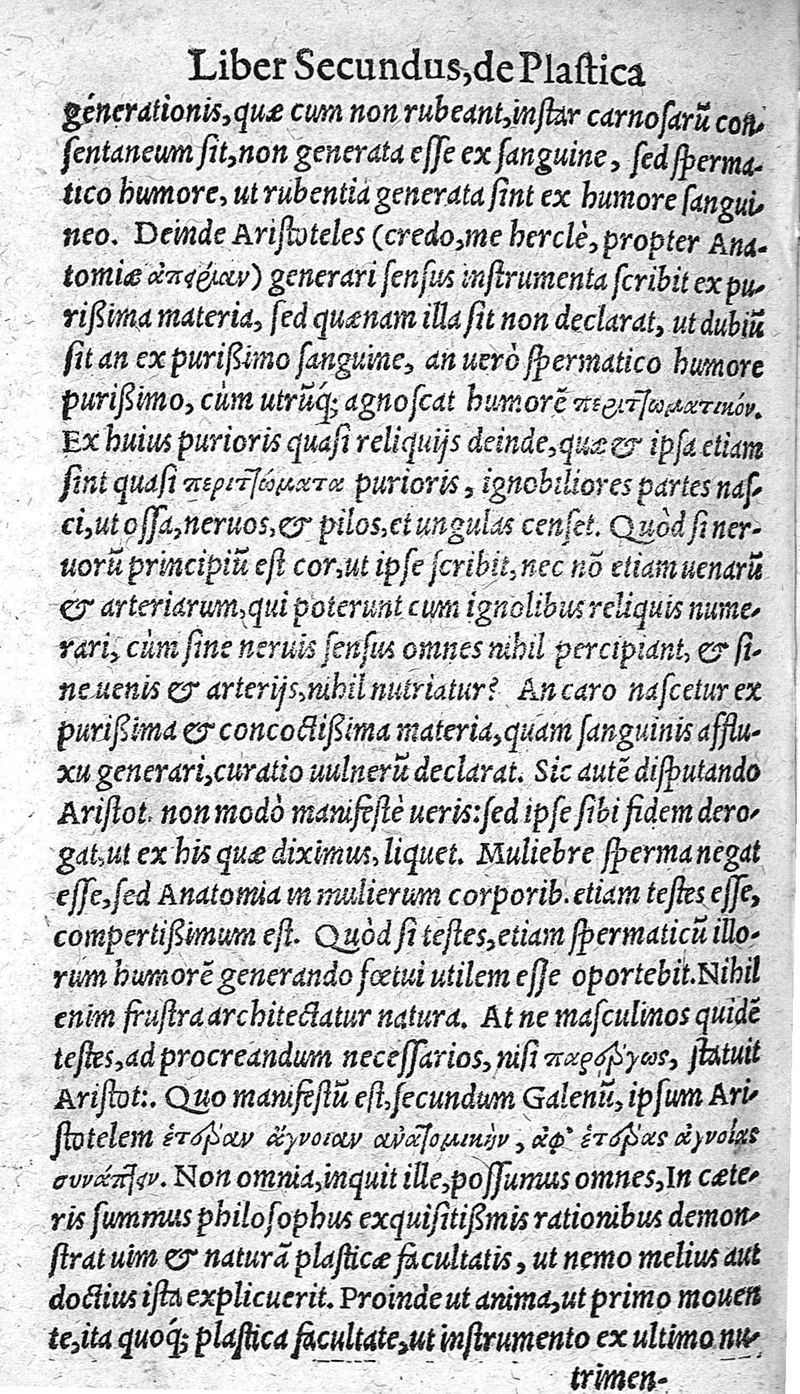 Liber Secundus, de Plastica
generationis, quæ cum non rubeant, instar carnosarũ con-
sentaneum sit, non generata esse ex sanguine, sed sperma-
tico humore, ut rubentia generata sint ex humore sangui-
neo. Deinde Aristoteles (credo, me herclè, propter Ana-
tomiæ ἀπειρίαν) generari sensus instrumenta scribit ex pu-
rißima materia, sed quænam illa sit non declarat, ut dubiũ
sit an ex purißimo sanguine, an uerò spermatico humore
purißimo, cùm utrũq; agnoscat humorẽ περιττωματικόν.
Ex huius purioris quasi reliquijs deinde, quæ & ipsa etiam
sint quasi περιττώματα purioris, ignobiliores partes nas-
ci, ut ossa, neruos, & pilos, et ungulas censet. Quòd si ner-
uorũ principiũ est cor, ut ipse scribit, nec nõ etiam uenarũ
& arteriarum, qui poterunt cum ignolibus reliquis nume-
rari, cùm sine neruis sensus omnes nihil percipiant, & si-
ne uenis & arterijs, nihil nutriatur? An caro nascetur ex
purißima & concoctißima materia, quam sanguinis afflu-
xu generari, curatio uulnerũ declarat. Sic autẽ disputando
Aristot. non modò manifestè ueris: sed ipse sibi fidem dero-
gat, ut ex his quæ diximus, liquet. Muliebre sperma negat
esse, sed Anatomia in mulierum corporib. etiam testes esse,
compertißimum est. Quòd si testes, etiam spermaticũ illo-
rum humorẽ generando fœtui utilem esse oportebit. Nihil
enim frustra architectatur natura. At ne masculinos quidẽ
testes, ad procreandum necessarios, nisi παρέργως, statuit
Aristot:. Quo manifestũ est, secundum Galenũ, ipsum Ari-
stotelem ἑτέραν ἄγνοιαν ἀνατομικὴν, ἀφ' ἑτέρας ἀγνοίας
συνάπτειν. Non omnia, inquit ille, possumus omnes, In cæte-
ris summus philosophus exquisitißmis rationibus demon-
strat uim & naturã plasticæ facultatis, ut nemo melius aut
doctius ista explicuerit. Proinde ut anima, ut primo mouen
te, ita quoq; plastica facultate, ut instrumento ex ultimo nu-
trimen-